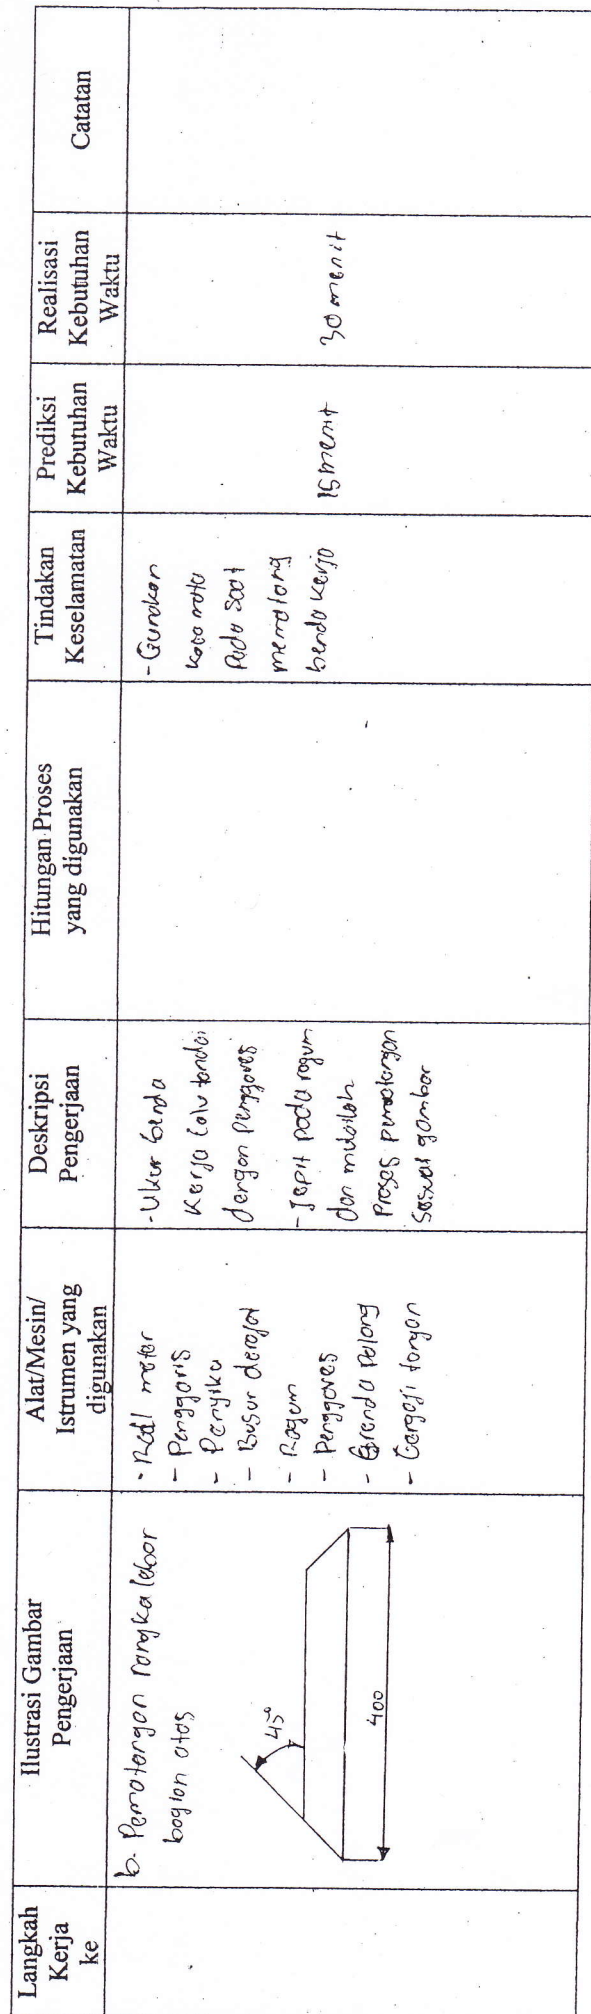 Langkah
Kerja
ke
Ilustrasi Gambar
Pengerjaan
Alat/Mesin/
Istrumen yang
digunakan
Deskripsi
Pengerjaan
Hitungan Proses
yang digunakan
Tindakan
Keselamatan
Prediksi
Kebutuhan
Waktu
Realisasi
Kebutuhan
Waktu
Catatan
b. Pemotongan rangka lebar
bagian atas
45°
400
- Roll meter
- Penggaris
- Penyiku
- Busur derajat
- Ragum
- Penggores
- Grenda Potong
- Gergaji tangan
- Ukur benda
Kerja lalu tandai
dengan penggores
- Jepit pada ragum
dan mulailah
Proses pemotongan
sesuai gambar
- Gunakan
kaca mata
Pada saat
memotong
benda kerja
15 menit
30 menit